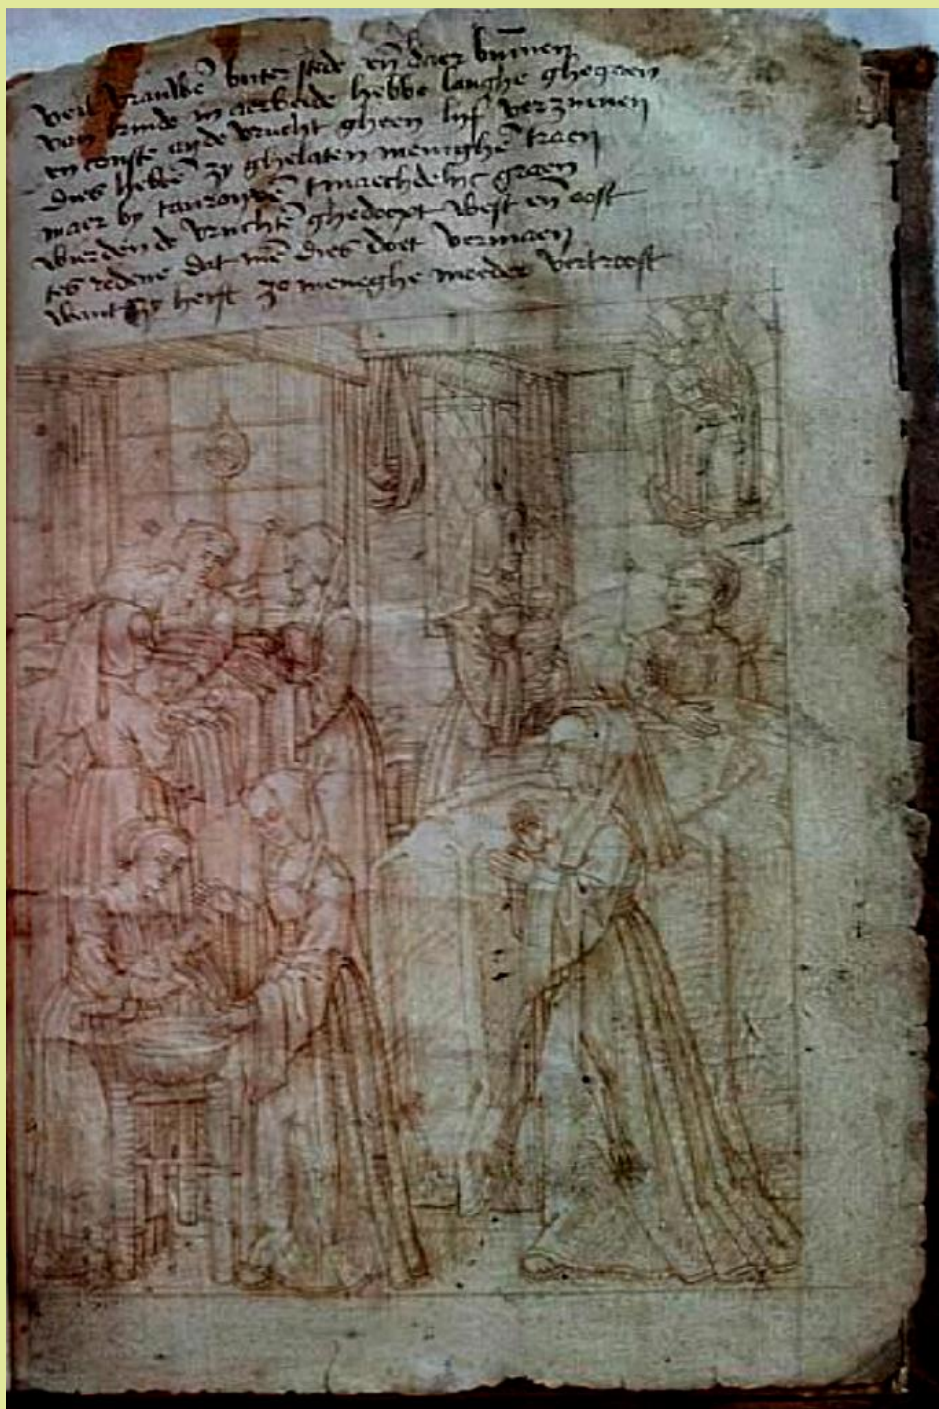 veil vrauwē buter stede eñ daer binnen
van kinde in aerbeide hebbē langhe ghegaen
en conste an de vrucht gheen lijf verzinnen
dies hebbē zy ghelaten menighē traen
maer by
wierden de vruchtē ghedoopt west eñ oost
tes redene dat mē dies doet vermaen
want zy heift zo meneghe moeder vertroost